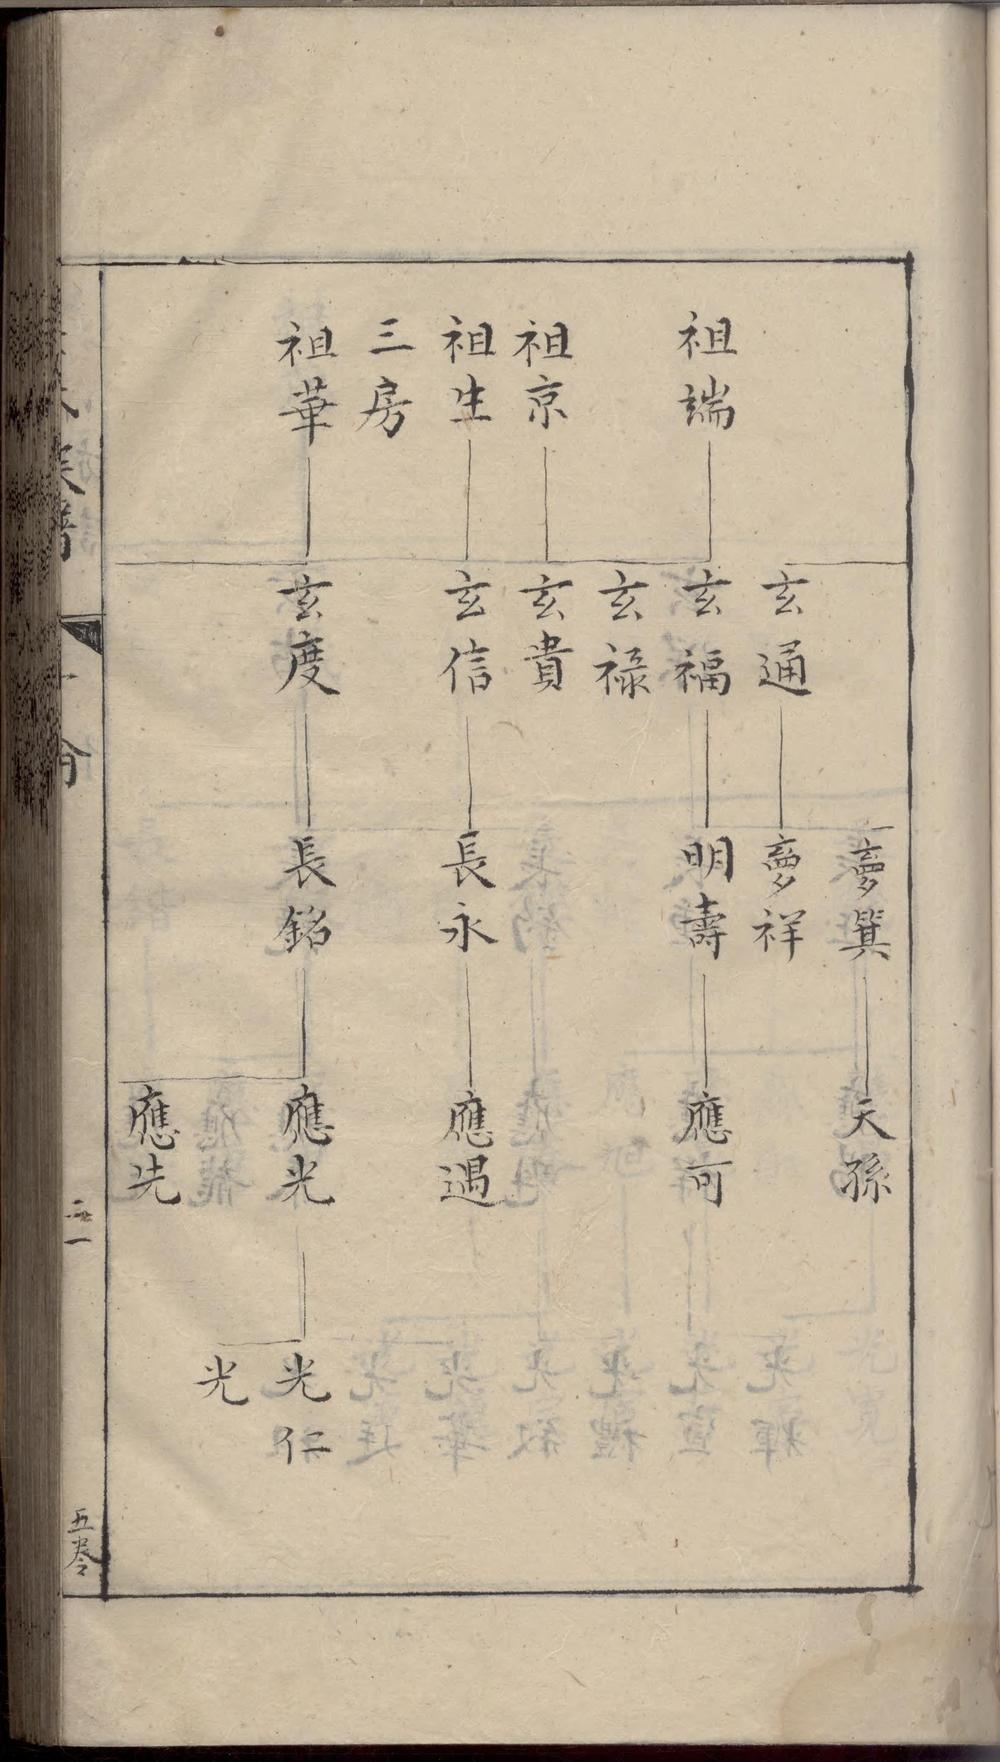 祖端
祖京
祖生
三房
祖華
玄通
玄福
玄祿
玄貴
玄信
玄度
夢箕
夢祥
明壽
長永
長銘
天孫
應可
應遇
應光
應先
光仁
光
族譜